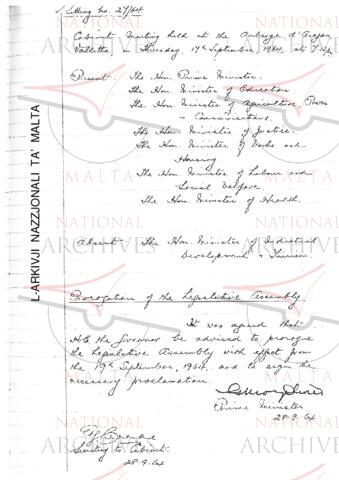 Sitting No. 27/64
Cabinet Meeting held at the Auberge d'Aragon,
Valletta, Thursday, 17th September, 1964, at
Present: The Hon. Prime Minister.
The Hon. Minister of Education
The Hon. Minister of Agriculture, Power
Communications.
The Hon. Minister of Justice.
The Hon. Minister of Works and
Housing
The Hon. Minister of Labour and
Social Welfare
The Hon. Minister of Health.
Absent: The Hon. Minister of Industrial
Development & Tourism
Prorogation of the Legislative Assembly.
It was agreed that
H.E. the Governor be advised to prorogue
the Legislative Assembly with effect from
the 19th September, 1964, and to sign the
necessary proclamation.
Prime Minister
28.9.64
Secretary to Cabinet.
28.9.64
L-ARKIVJI NAZZJONALI TA' MALTA
NATIONAL
ARCHIVES
MALTA